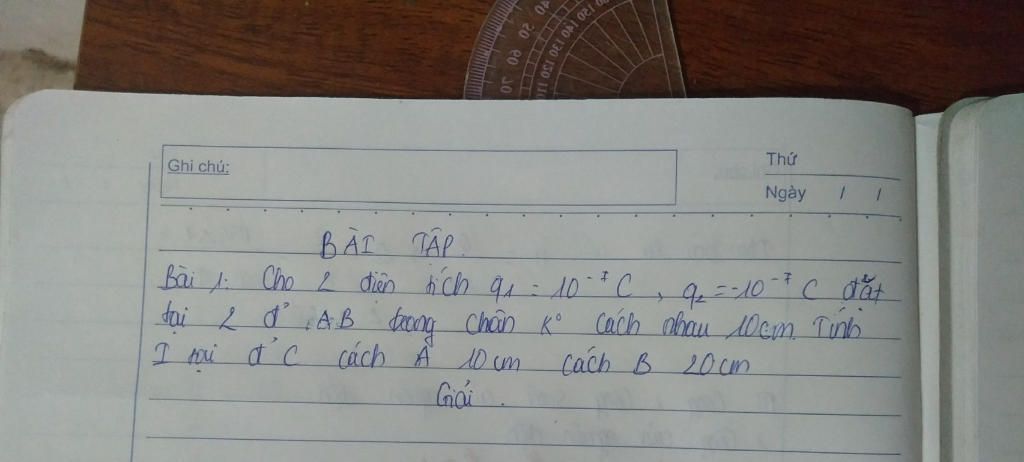 Ghi chú:
Thứ
Ngày / /
BÀI TẬP.
Bài 1: Cho 2 điện tích q₁ = 10⁻⁷ C, q₂ = -10⁻⁷ C đặt
tại 2 đ', A.B trong chân k° cách nhau 10cm. Tính
I tại đ' C cách A 10cm cách B 20cm
Giải.